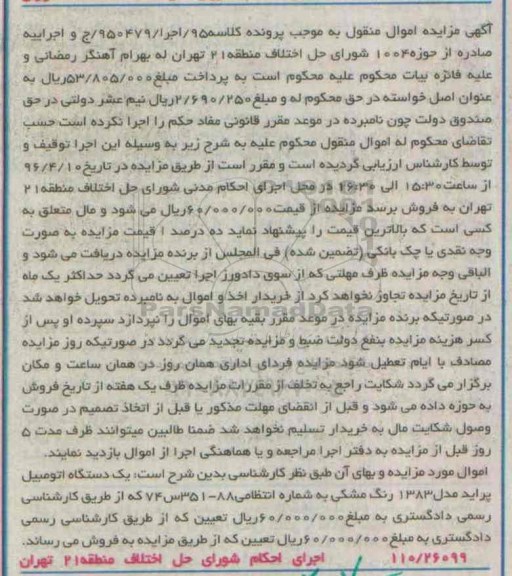 آگهی مزایده اموال منقول به موجب پرونده کلاسه۹۵/اجرا/۹۵۰۴۷۹/ح و اجراییه
صادره از حوزه۱۰۰۴ شورای حل اختلاف منطقه۲۱ تهران له بهرام آهنگر رمضانی و
علیه فائزه بیات محکوم علیه محکوم است به پرداخت مبلغ۵۳/۸۰۵/۰۰۰ریال به
عنوان اصل خواسته در حق محکوم له و مبلغ۲/۶۹۰/۲۵۰ریال نیم عشر دولتی در حق
صندوق دولت چون نامبرده در موعد مقرر قانونی مفاد حکم را اجرا نکرده است حسب
تقاضای محکوم له اموال منقول محکوم علیه به شرح زیر به وسیله این اجرا توقیف و
توسط کارشناس ارزیابی گردیده است و مقرر است از طریق مزایده در تاریخ۹۶/۴/۱۰
از ساعت۱۵:۳۰ الی ۱۶:۳۰ در محل اجرای احکام مدنی شورای حل اختلاف منطقه۲۱
تهران به فروش برسد مزایده از قیمت۶۰/۰۰۰/۰۰۰ریال می شود و مال متعلق به
کسی است که بالاترین قیمت را پیشنهاد نماید ده درصد ا قیمت مزایده به صورت
وجه نقدی یا چک بانکی (تضمین شده) فی المجلس از برنده مزایده دریافت می شود و
الباقی وجه مزایده ظرف مهلتی که از سوی دادورز اجرا تعیین می گردد حداکثر یک ماه
از تاریخ مزایده تجاوز نخواهد کرد از خریدار اخذ و اموال به نامبرده تحویل خواهد شد
در صورتیکه برنده مزایده در موعد مقرر بقیه بهای اموال را نپردازد سپرده او پس از
کسر هزینه مزایده بنفع دولت ضبط و مزایده تجدید می گردد در صورتیکه روز مزایده
مصادف با ایام تعطیل شود مزایده فردای اداری همان روز در همان ساعت و مکان
برگزار می گردد شکایت راجع به تخلف از مقررات مزایده ظرف یک هفته از تاریخ فروش
به حوزه داده می شود و قبل از انقضای مهلت مذکور یا قبل از اتخاذ تصمیم در صورت
وصول شکایت مال به خریدار تسلیم نخواهد شد ضمنا طالبین میتوانند ظرف مدت ۵
روز قبل از مزایده به دفتر اجرا مراجعه و با هماهنگی اجرا از اموال بازدید نمایند.
اموال مورد مزایده و بهای آن طبق نظر کارشناسی بدین شرح است: یک دستگاه اتومبیل
پراید مدل۱۳۸۳ رنگ مشکی به شماره انتظامی۸۸-۳۵۱س۷۴ که از طریق کارشناسی
رسمی دادگستری به مبلغ۶۰/۰۰۰/۰۰۰ریال تعیین که از طریق کارشناسی رسمی
دادگستری به مبلغ۶۰/۰۰۰/۰۰۰ریال تعیین که از طریق مزایده به فروش می رساند.
۱۱۰/۲۶۰۹۹ اجرای احکام شورای حل اختلاف منطقه۲۱ تهران
ParsNamadData